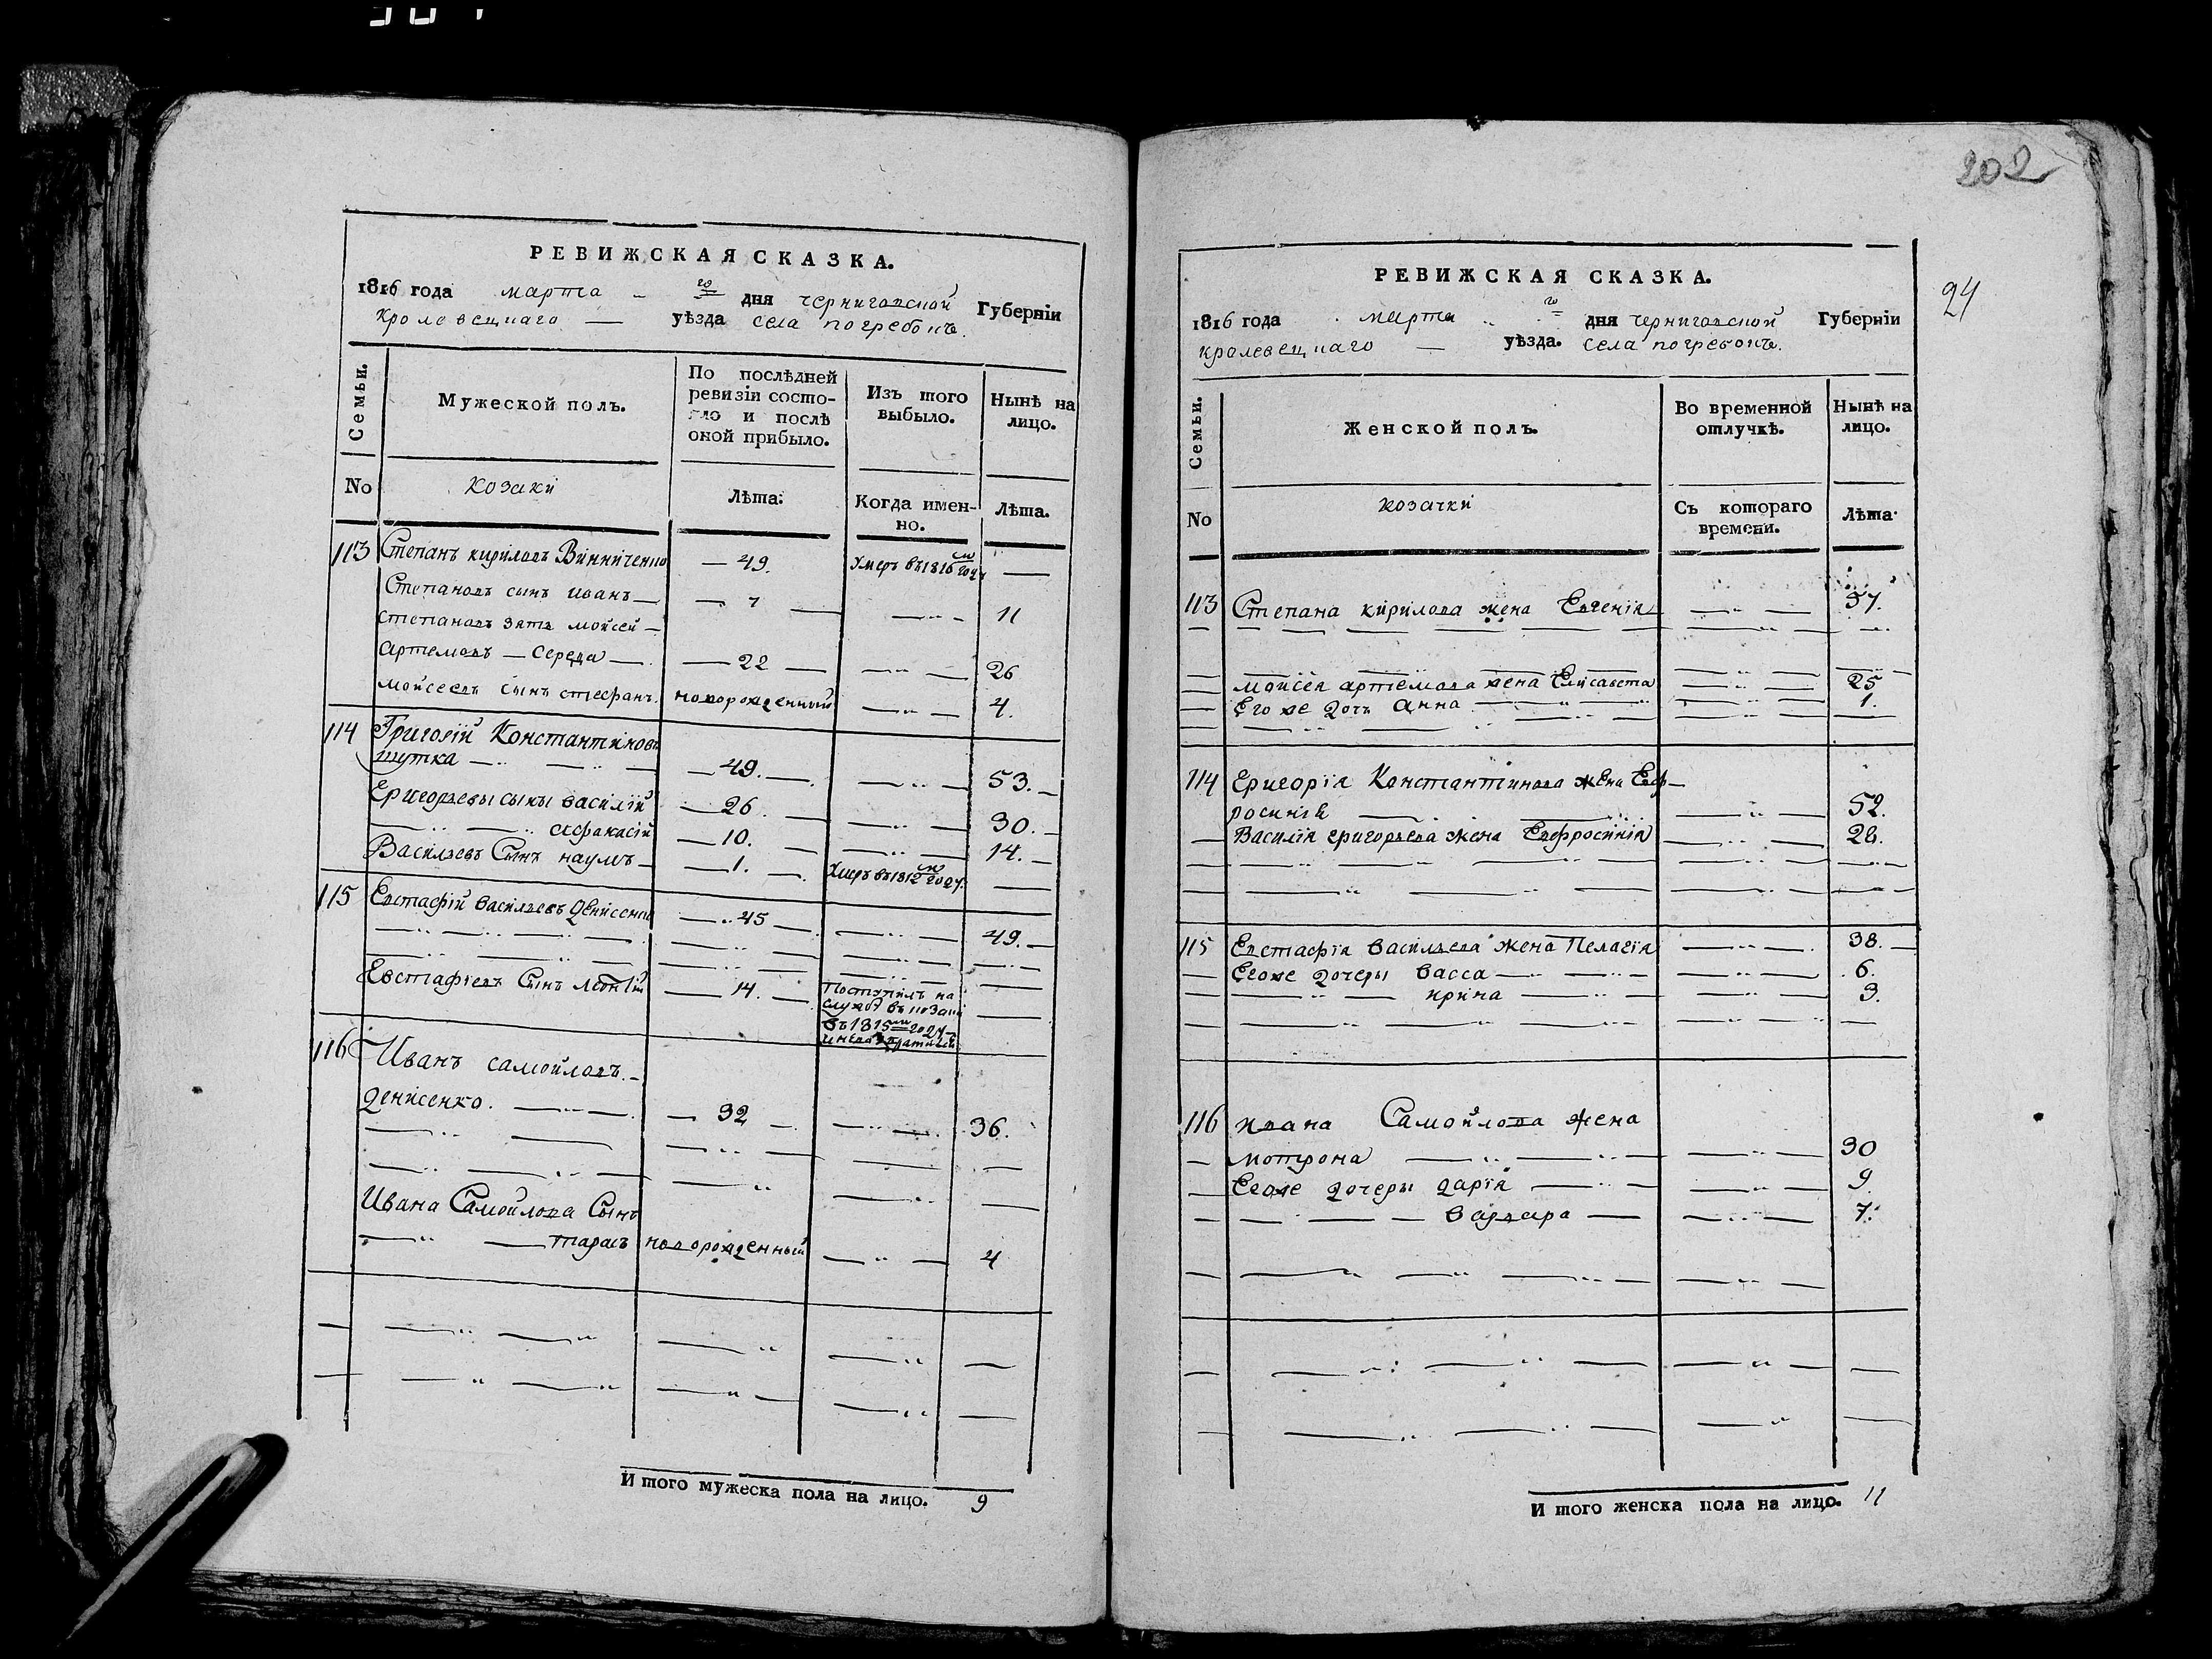 202
24
РЕВИЖСКАЯ СКАЗКА.
1816 года марта го дня черниговской Губерніи
кролевецкаго уѣзда села погребокъ.
Семьи.
Мужеской полъ.
По послѣдней
ревизіи состо-
яло и послѣ
оной прибыло.
Изъ того
выбыло.
Нынѣ на
лицо.
No
козаки
Лѣта.
Когда имен-
но.
Лѣта.
113 Степанъ кириловъ Винниченко 49. Умеръ въ 1816м году
Степановъ сынъ иванъ 7 11
степановъ зять мойсей
артемовъ середа 22 26
мойсеевъ сынъ стефанъ. новорожденный 4.
114 Григорій Константиновъ
шутка 49. 53.
Григорьевы сыны василій 26 30.
афанасій 10. 14.
Васильевъ Сынъ наумъ 1. Умеръ въ 1812м году.
115 Евстафій васильевъ денисенко 45 49.
Евстафіевъ Сынъ леонтій 14. Поступилъ на
службу въ козаки
въ 1815м году
116 Иванъ самойловъ
денисенко. 32 36.
Ивана Самойлова Сынъ
тарасъ новорожденный 4
И того мужеска пола на лицо. 9
РЕВИЖСКАЯ СКАЗКА.
1816 года марта го дня черниговской Губерніи
кролевецкаго уѣзда. села погребокъ.
Семьи.
Женской полъ.
Во временной
отлучкѣ.
Нынѣ на
лицо.
No
козачки
Съ котораго
времени.
Лѣта.
113 Степана кирилова жена Евгенія 57.
мойсея артемова жена Елисавета 25
Его же дочь анна 1.
114 Григорія Константинова жена Евф-
росинія 52.
Василія григорьева жена Евфросинія 28.
115 Евстафія васильева жена Пелагія 38.
Егоже дочеры васса 6.
ирина 3.
116 ивана Самойлова жена
мотрона 30
Егоже дочеры дарія 9
варвара 7.
И того женска пола на лицо. 11